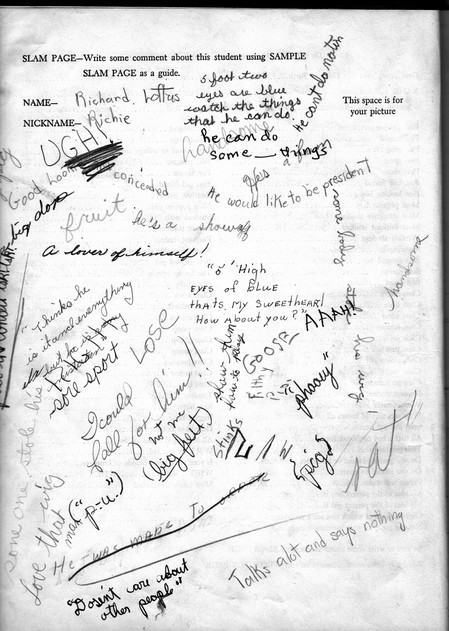 SLAM PAGE—Write some comment about this student using SAMPLE
SLAM PAGE as a guide.
NAME— Richard Loftus
NICKNAME— Richie
This space is for
your picture
5 foot two
eyes are blue
watch the things
that he can do.
he can do
some — things
He can't do nothin
handsome
UGH!
Good Lookin
conceeded
He's a
He would like to be president
fruit
he's a showoff
A lover of himself!
"5' High
EYES OF BLUE
THATS MY SWEETHEART
HOW ABOUT YOU?"
AAAH!
handsome
some body stole his wig
"Thinks he
is it and everything
sore sport
LOSE
I could
fall for him!!
not me
(big feet)
show them
how to
Stinks
"phooey"
{pig}
"rat"
some one stole his
Love that wig
man
("p-u")
He was MADE TO ORDER
"Dosen't care about
other people"
Talks alot and says nothing